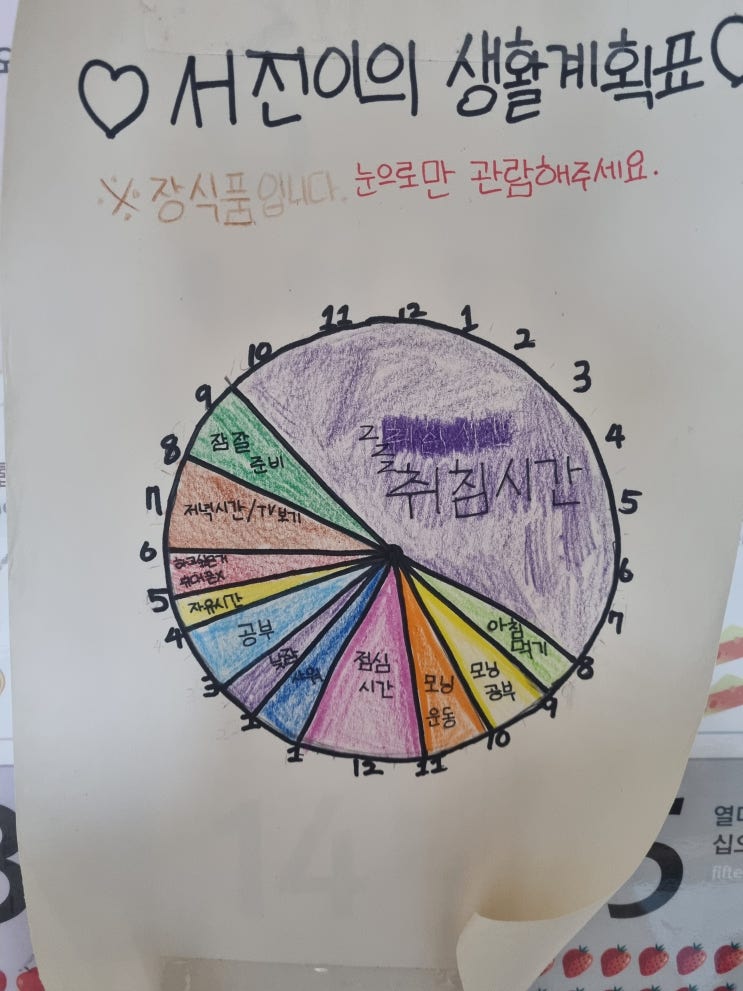 ♡ 서진이의 생활계획표 ♡
※ 장식품입니다. 눈으로만 관람해주세요.
11 12 1 2 3 4 5 6 7 8 9 10 11 12 1 2 3 4 5 6 7 8 9 10
취침시간
아침
먹기
모닝
공부
모닝
운동
점심
시간
낮잠
공부
자유시간
저녁시간/TV보기
잠잘
준비
14
5
열
십으
fifte